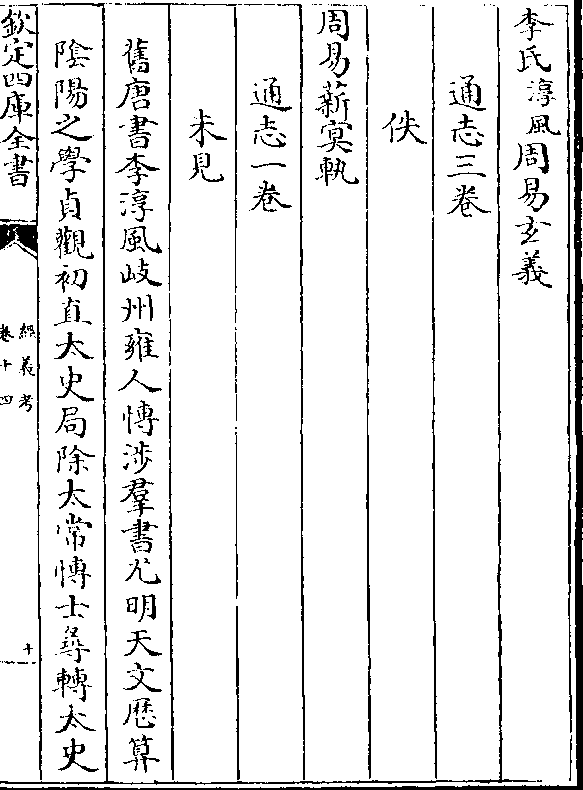 李氏淳風周易玄義
通志三卷
佚
周易薪蓂軌
通志一卷
未見
舊唐書李淳風岐州雍人愽涉羣書尤明天文厯算
陰陽之學貞觀初直太史局除太常愽士尋轉太史
欽定四庫全書
經義考
卷十四
十